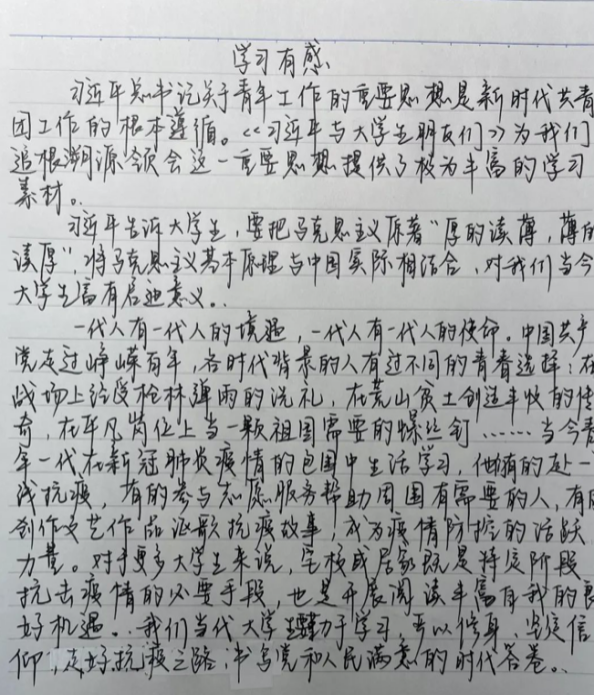 学习有感
习近平总书记关于青年工作的重要思想是新时代共青
团工作的根本遵循。《习近平与大学生朋友们》为我们
追根溯源领会这一重要思想提供了极为丰富的学习
素材。
习近平告诉大学生,要把马克思主义原著“厚的读薄,薄的
读厚”,将马克思主义基本原理与中国实际相结合,对我们当今
大学生富有启迪意义。
一代人有一代人的境遇,一代人有一代人的使命。中国共产
党走过峥嵘百年,各时代背景的人有过不同的青春选择:在
战场上经受枪林弹雨的洗礼,在荒山贫土创造丰收的传
奇,在平凡岗位上当一颗祖国需要的螺丝钉……当今青
年一代在新冠肺炎疫情的包围中生活学习,他们有的赴一
线抗疫,有的参与志愿服务帮助周围有需要的人,有的
创作文艺作品讴歌抗疫故事,成为疫情防控的活跃
力量。对于更多大学生来说,宅校或居家既是特定阶段
抗击疫情的必要手段,也是开展阅读丰富自我的良
好机遇。我们当代大学生要勤于学习,专以修身,坚定信
仰,走好抗疫之路,书写党和人民满意的时代答卷。